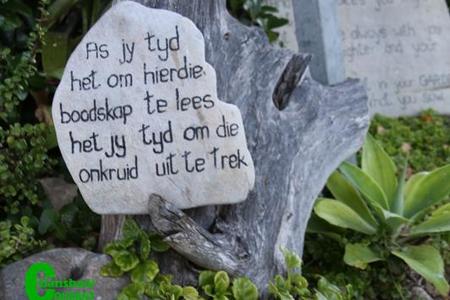 As jy tyd
het om hierdie
boodskap te lees
het jy tyd om die
onkruid uit te trek
always with you
and your
in your GARDEN